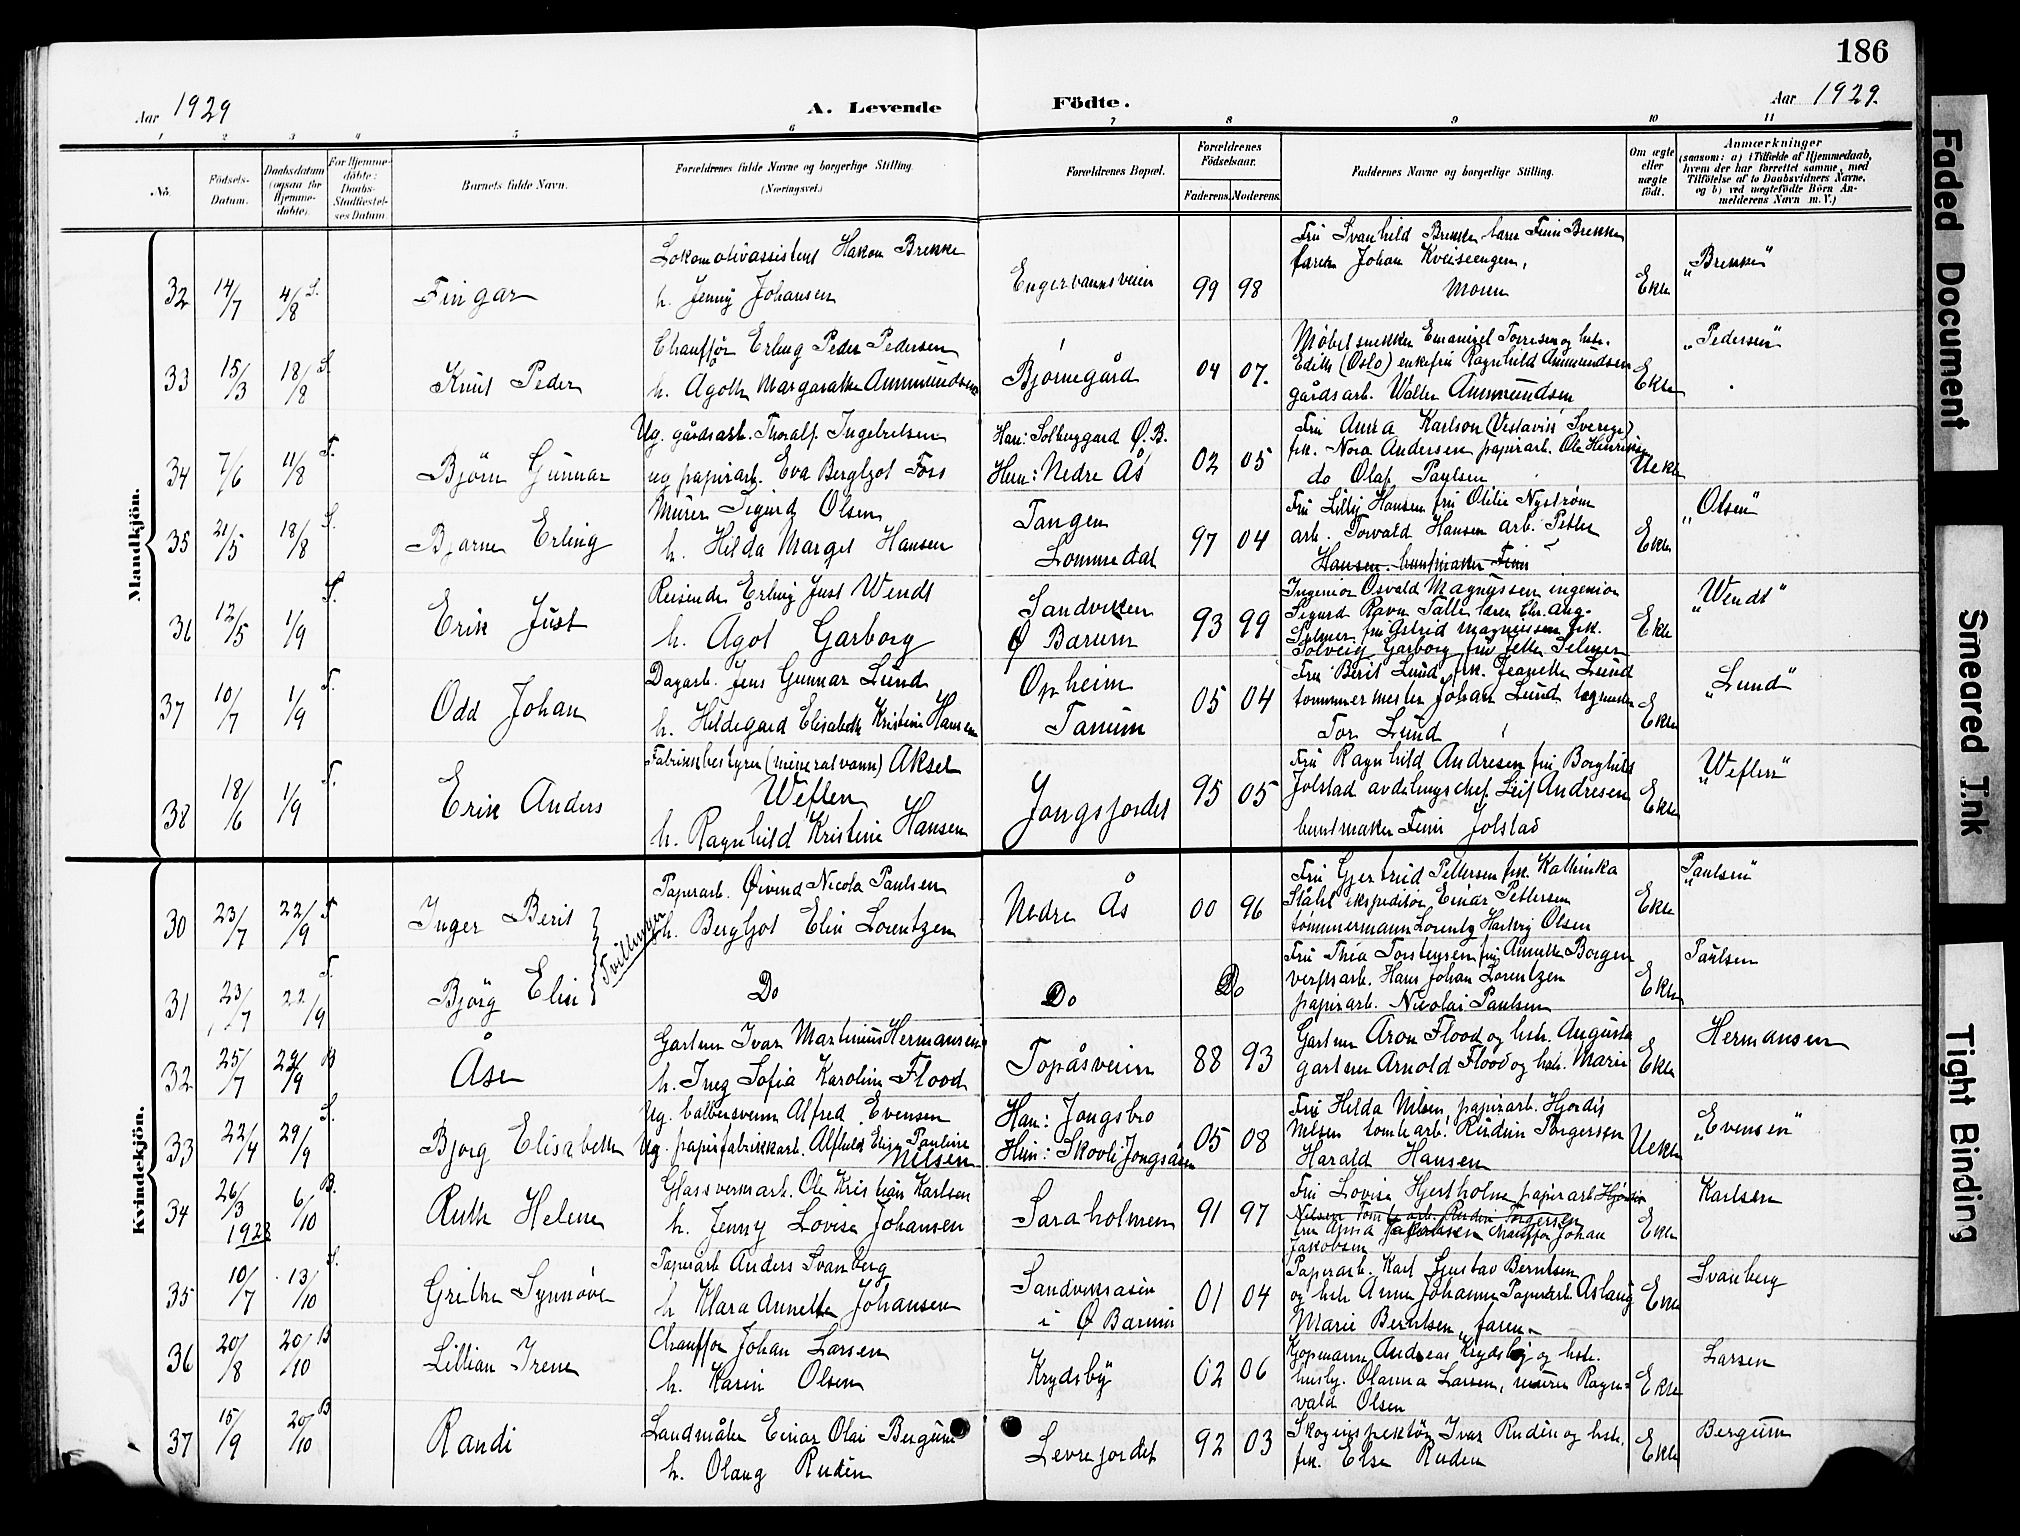 186
Aar 1929
A. Levende Födte.
Aar 1929.
1 2 3 4 5 6 7 8 9 10 11
No.
Födsels-Datum.
Daabsdatum (ogsaa for Hjemme-døbte).
For Hjemme-døbte: Daabs-Stadfæstel-ses Datum.
Barnets fulde Navn.
Forældrenes fulde Navne og borgerlige Stilling.
(Næringsvei.)
Forældrenes Bopæl.
Forældrenes Födselsaar.
Faderens. Moderens.
Faddernes Navne og borgerlige Stilling.
Om ægte eller uægte födt.
Anmærkninger
(saasom: a) i Tilfælde af Hjemmedaab, hvem der har forrettet samme, med Tilföielse af to Daabsvidners Navne, og b) ved uægtefödte Börn An-melderens Navn m. V.)
Mandkjön.
32 14/7 4/8 S. Fingar
Lokomotivassistent Hakon Brekke
h. Jenny Johansen
Engervannsveien 99 98
Fru Svanhild Brekke, lærer Finn Brekke
Johan
Moren
Ekte "Brekke"
33 15/3 18/8 S. Knut Peder
Chauffør Erling Peder Pedersen
h. Ågoth Margarathe Ammundsen
Bjørnegård 04 07.
Møbelsnekker Emanuel Torresen og hstr.
Edith (Oslo) enkefru Ragnhild Ammundsen
gårdsarb. Walter Ammundsen
Ekte "Pedersen"
34 7/6 11/8 T. Bjørn Gunnar
Ug. gårdsarb. Thoralf Ingebretsen
ug papirarb. Eva Bergljot Foss
Han: Solbyggard Ø. B.
Hun: Nedre Ås 02 05
Fru Anna Karlson (Sverige)
frk. Nora Andersen papirarb. Ole Henriksen
do Olaf Paulsen
Uekte
35 21/5 18/8 S. Bjarne Erling
Murer Sigurd Olsen
h. Hilda Margit Hansen
Tangen
Lommedal 97 04
Fru Lilly Hansen fru Otilie Nystrøm
arb. Torvald Hansen arb. Petter
Hansen. buntmaker Finn
Ekte "Olsen"
36 12/5 1/9 S. Erik Just
Reisende Erling Just Wendt
h. Ågot Garborg
Sandviken
Ø Bærum 93 99
Ingeniør Osvald Magnussen ingeniør
Sigurd Ravn Tallh lærer Chr. Aug.
Selmer fru Astrid Magnussen frk.
Solveig Garborg fru Jette Selmer
Ekte "Wendt"
37 10/7 1/9 T. Odd Johan
Dagarb. Jens Gunnar Lund
h. Hildegard Elisabeth Kristine Hansen
Opheim
Tanum 05 04
Fru Berit Lund, frk. Jeanette Lund
tømmermester Johan Lund
Tor Lund
Ekte "Lund"
38 18/6 1/9 T. Erik Anders
Fabrikkbestyrer (mineralvann) Aksel
Weflen
h. Ragnhild Kristine Hansen
Jongsjordet 95 05
Fru Ragnhild Andresen fru Borghild
Jolstad avdelingschef Leif Andresen
buntmaker Finn Jolstad
Ekte "Weflen"
Kvindekjön.
30 23/7 22/9 T. Inger Berit
Tvillinger
Papirarb. Øivind Nicolai Paulsen
h. Bergljot Elin Lorentzen
Nedre Ås 00 96
Fru Gjertrud Pettersen frk. Kathinka
Ståhl ekspeditør Einar Pettersen
tømmermann Lorentz Hartvig Olsen
Ekte "Paulsen"
31 23/7 22/9 T. Bjørg Elin
Do Do Do
Fru Thea Torstensen fru Annette Borgen
verftsarb. Hans Johan Lorentzen
papirarb. Nicolai Paulsen
Ekte Paulsen
32 25/7 29/9 B Åse
Gartner Ivar Martinius Hermansen
h. Inez Sofia Karoline Flood
Topåsveien 88 93
Gartner Aron Flood og hstr. Augusta
gartner Arnold Flood og hstr. Marie
Ekte Hermansen
33 22/4 29/9 S. Bjørg Elisabeth
Ug. balbersvenn Alfred Evensen
Ug. papirfabrikkarb. Alfhild Elise Pauline
Nilsen
Han: Jongsbro
Hun: Skovli Jongsåsen 05 08
Fru Hilda Nilsen papirarb. Hjørdis
Nilsen tomtearb. Rudin Torgersen
Harald Hansen
Uekte "Evensen"
34 26/3 1928 6/10 B. Ruth Helene
Glassverkarb. Ole Kristian Karlsen
h. Jenny Lovise Johansen
Saraholmen 91 97
Fru Lovise Hjertholm papirarb Hjørdis
Nilsen Tomtearb. Rudin Torgersen
fru Anna Jakobsen chauffør Johan
Jakobsen
Ekte Karlsen
35 10/7 13/10 S. Grethe Synnøve
Papirarb Anders Svanberg
h Klara Annette Johansen
Sandviksåsen
i Ø Bærum 01 04
Papirarb. Karl Gustav Berntsen
og hstr Anna Johanne Papirarb. Aslaug
Marie Berntsen, faren
Ekte Svanberg
36 20/8 20/10 B Lillian Irene
Chauffør Johan Larsen
h. Karin Olsen
Krydsby 02 06
Kjøpmann Andreas Krydsby og hstr.
husby. Olanna Larsen, murer Ragn-
vald Olsen
Ekte Larsen
37 15/9 20/10 B Randi
Landmåler Einar Olai Bergum
h. Olaug Rudén
Levrejordet 92 03
Skoginspektør Ivar Rudén og hstr.
frk. Else Rudén
Ekte Bergum
Faded Document
Smeared Ink
Tight Binding